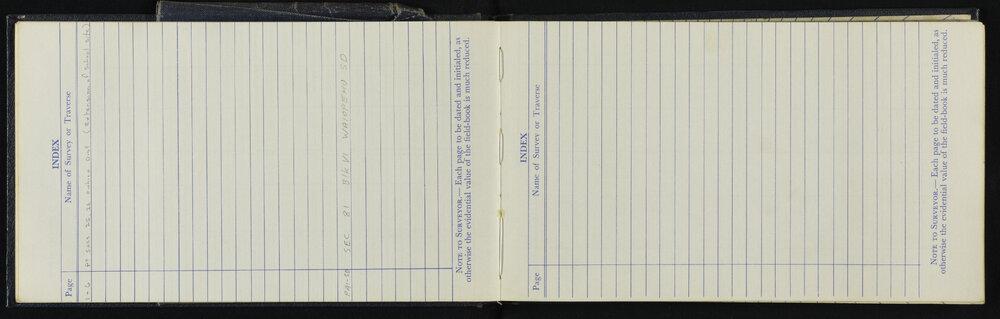 INDEX
Page Name of Survey or Traverse
1-6 Pt Secs 25, 26 Dist (Extension of School Site)
SEC 81 Blk VI WAIOPEHU SD
NOTE TO SURVEYOR.— Each page to be dated and initialed, as
otherwise the evidential value of the field-book is much reduced.
INDEX
Page Name of Survey or Traverse
NOTE TO SURVEYOR.— Each page to be dated and initialed, as
otherwise the evidential value of the field-book is much reduced.